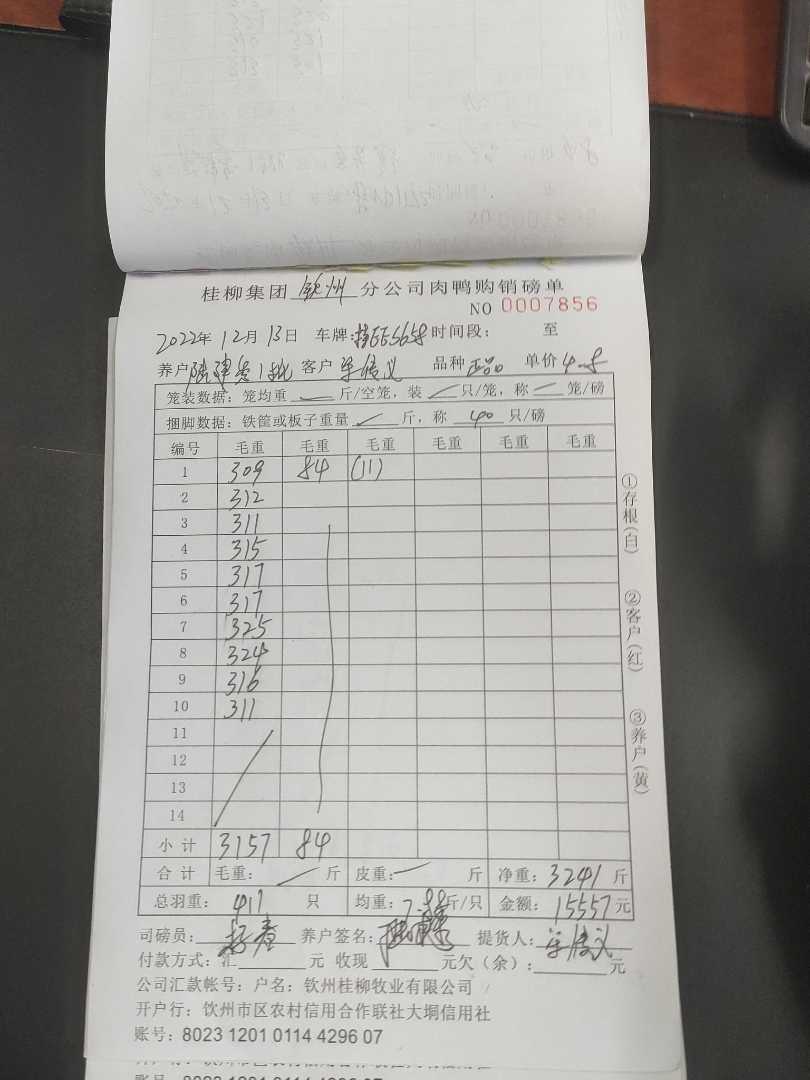 桂柳集团 钦州 分公司肉鸭购销磅单
NO 0007856
2022年 12月 13日 车牌: 时间段: 至
养户 1批 客户 品种 正品 单价
笼装数据：笼均重 斤/空笼，装 只/笼，称 笼/磅
捆脚数据：铁筐或板子重量 斤，称 40 只/磅
编号 毛重 毛重 毛重 毛重 毛重 毛重
1 309 84 (11)
2 312
3 311
4 315
5 317
6 317
7 325
8 324
9 316
10 311
11
12
13
14
小计 3157 84
合计 毛重： 斤 皮重： 斤 净重：3241 斤
总羽重： 411 只 均重： 斤/只 金额：15557元
司磅员： 养户签名： 提货人：
付款方式：汇 元 收现 元欠（余）： 元
公司汇款帐号：户名：钦州桂柳牧业有限公司
开户行：钦州市区农村信用合作联社大垌信用社
账号：8023 1201 0114 4296 07
①存根(白)
②客户(红)
③养户(黄)